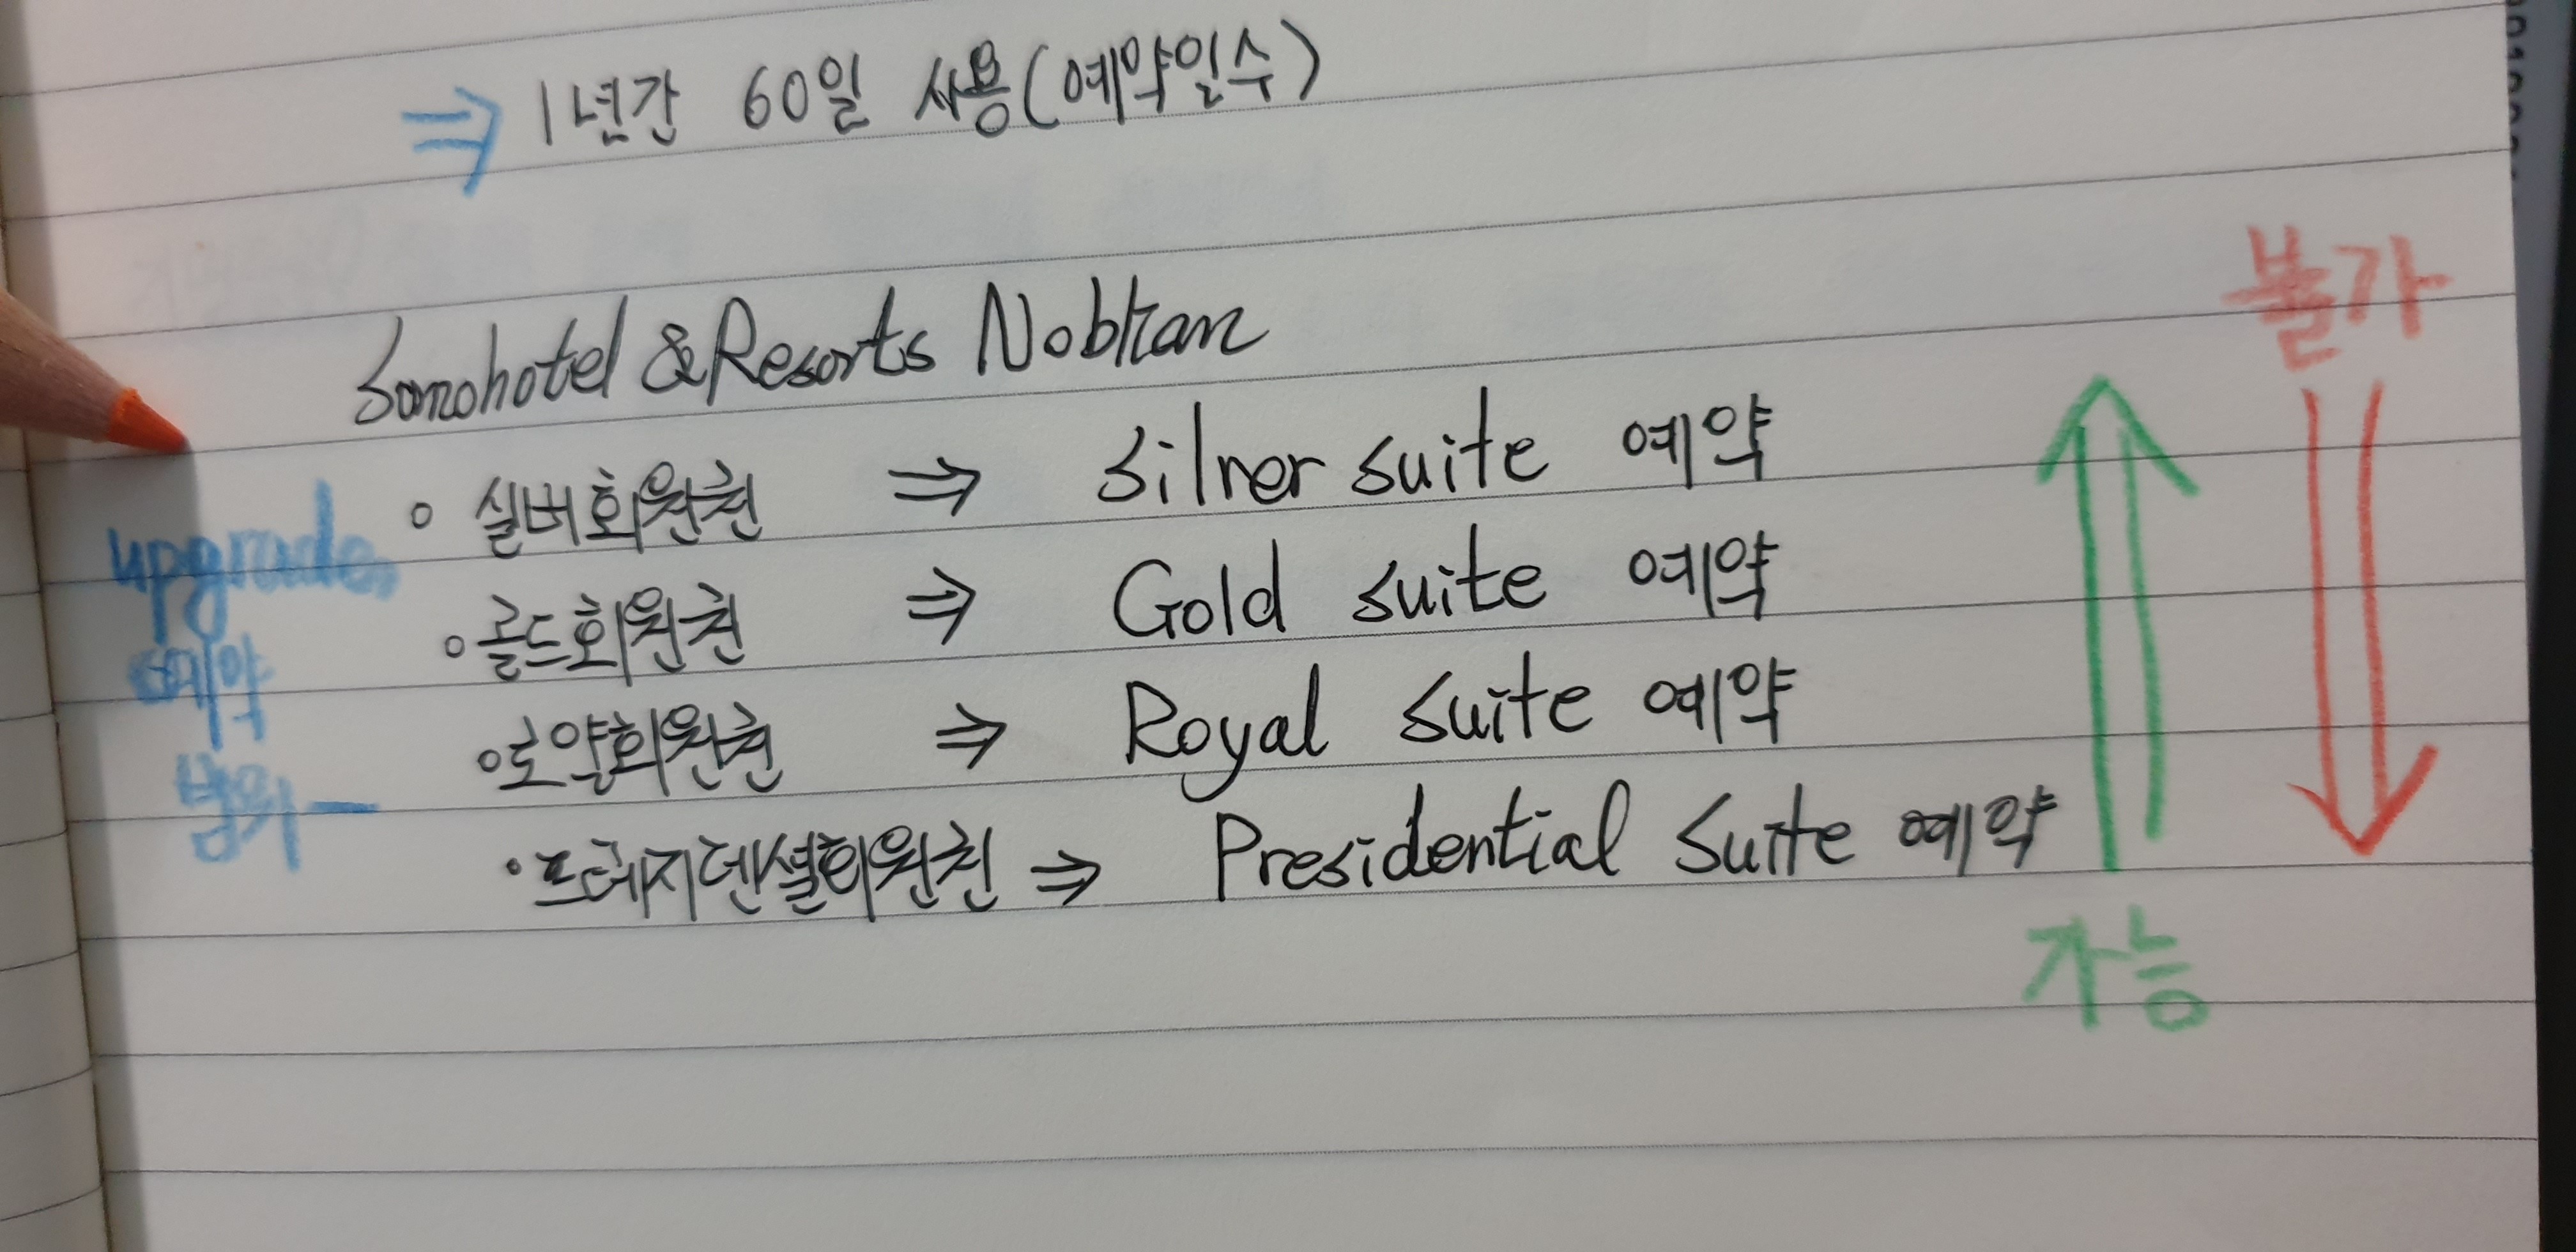 ⇒ 1년간 60일 사용(예약일수)
Sonohotel & Resorts Noblian
불가
upgrade
예약
범위
∘ 실버회원권 ⇒ Silver suite 예약
∘ 골드회원권 ⇒ Gold suite 예약
∘ 로얄회원권 ⇒ Royal suite 예약
∘ 프레지덴셜회원권 ⇒ Presidential suite 예약
가능